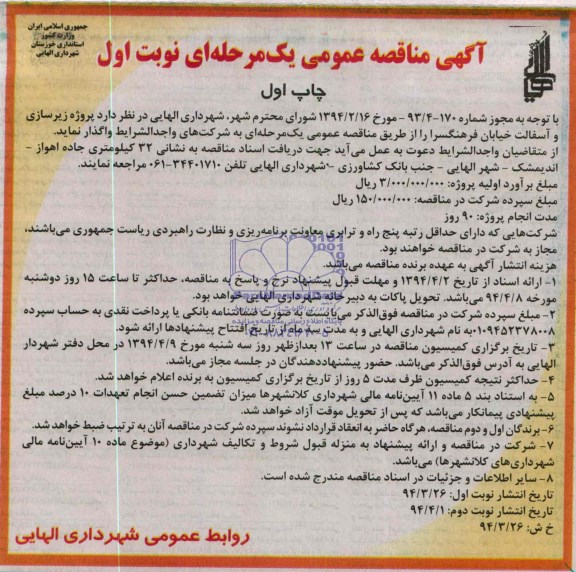 جمهوری اسلامی ایران
وزارت کشور
استانداری خوزستان
شهرداری الهایی
آگهی مناقصه عمومی یک‌مرحله‌ای نوبت اول
چاپ اول
با توجه به مجوز شماره ۱۷۰-۹۳/۴ - مورخ ۱۳۹۴/۲/۱۶ شورای محترم شهر، شهرداری الهایی در نظر دارد پروژه زیرسازی
و آسفالت خیابان فرهنگسرا را از طریق مناقصه عمومی یک‌مرحله‌ای به شرکت‌های واجدالشرایط واگذار نماید.
از متقاضیان واجدالشرایط دعوت به عمل می‌آید جهت دریافت اسناد مناقصه به نشانی ۳۲ کیلومتری جاده اهواز -
اندیمشک - شهر الهایی - جنب بانک کشاورزی - شهرداری الهایی تلفن ۳۴۴۰۱۷۱۰-۰۶۱ مراجعه نمایند.
مبلغ برآورد اولیه پروژه: ۳/۰۰۰/۰۰۰/۰۰۰ ریال
مبلغ سپرده شرکت در مناقصه: ۱۵۰/۰۰۰/۰۰۰ ریال
مدت انجام پروژه: ۹۰ روز
شرکت‌هایی که دارای حداقل رتبه پنج راه و ترابری معاونت برنامه‌ریزی و نظارت راهبردی ریاست جمهوری می‌باشند،
مجاز به شرکت در مناقصه خواهند بود.
هزینه انتشار آگهی به عهده برنده مناقصه می‌باشد.
۱- ارائه اسناد از تاریخ ۱۳۹۴/۴/۲ و مهلت قبول پیشنهاد نرخ و پاسخ به مناقصه، حداکثر تا ساعت ۱۵ روز دوشنبه
مورخه ۹۴/۴/۸ می‌باشد. تحویل پاکات به دبیرخانه شهرداری الهایی خواهد بود.
۲- مبلغ سپرده شرکت در مناقصه فوق‌الذکر می‌بایست به صورت ضمانتنامه بانکی یا پرداخت نقدی به حساب سپرده
۰۱۰۹۴۵۲۳۷۸۰۰۸ به نام شهرداری الهایی و به مدت سه ماه از تاریخ افتتاح پیشنهادها ارائه شود.
۳- تاریخ برگزاری کمیسیون مناقصه در ساعت ۱۳ بعدازظهر روز سه شنبه مورخ ۱۳۹۴/۴/۹ در محل دفتر شهردار
الهایی به آدرس فوق‌الذکر می‌باشد. حضور پیشنهاددهندگان در جلسه مجاز می‌باشد.
۴- حداکثر نتیجه کمیسیون ظرف مدت ۵ روز از تاریخ برگزاری کمیسیون به برنده اعلام خواهد شد.
۵- به استناد بند ۵ ماده ۱۱ آیین‌نامه مالی شهرداری کلانشهرها میزان تضمین حسن انجام تعهدات ۱۰ درصد مبلغ
پیشنهادی پیمانکار می‌باشد که پس از تحویل موقت آزاد خواهد شد.
۶- برندگان اول و دوم مناقصه، هرگاه حاضر به انعقاد قرارداد نشوند سپرده شرکت در مناقصه آنان به ترتیب ضبط خواهد شد.
۷- شرکت در مناقصه و ارائه پیشنهاد به منزله قبول شروط و تکالیف شهرداری (موضوع ماده ۱۰ آیین‌نامه مالی
شهرداری‌های کلانشهرها) می‌باشد.
۸- سایر اطلاعات و جزئیات در اسناد مناقصه مندرج شده است.
تاریخ انتشار نوبت اول: ۹۴/۳/۲۶
تاریخ انتشار نوبت دوم: ۹۴/۴/۱
خ ش: ۹۴/۳/۲۶
روابط عمومی شهرداری الهایی